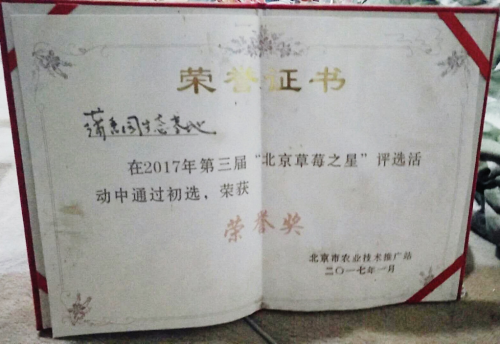 荣誉证书
蒲香阁生态基地
在2017年第三届“北京草莓之星”评选活
动中通过初选，荣获
荣誉奖
北京市农业技术推广站
二〇一七年一月